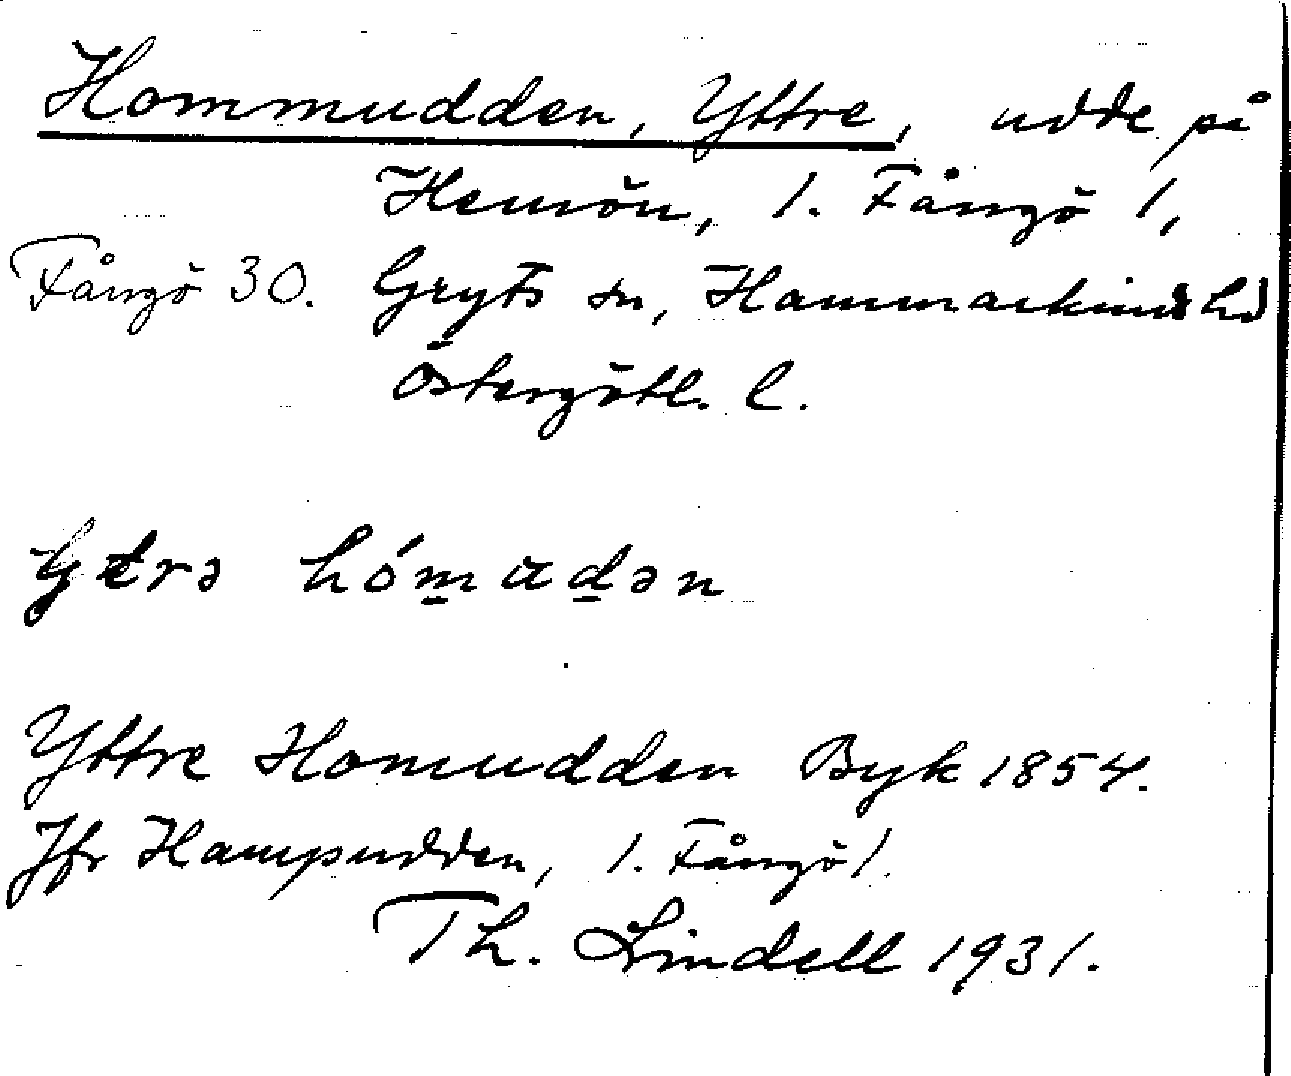 Hommudden, Yttre, udde på
Hemön, 1. Fångö 1,
Fångö 30. Gryts sn, Hammarkinds hd
Östergötl. l.
ytrə hómudən
Yttre Homudden Byk 1854.
Jfr Hampudden, 1. Fångö 1.
Th. Lindell 1931.